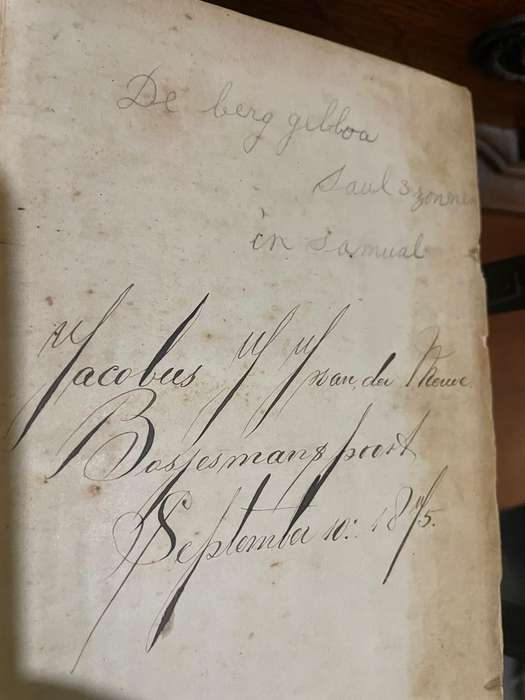 De berg gelboa
Saul 3 zonnen
in Samual
Jacobus J J van der Merwe.
Bosjesmanspoort
September 10: 1875.